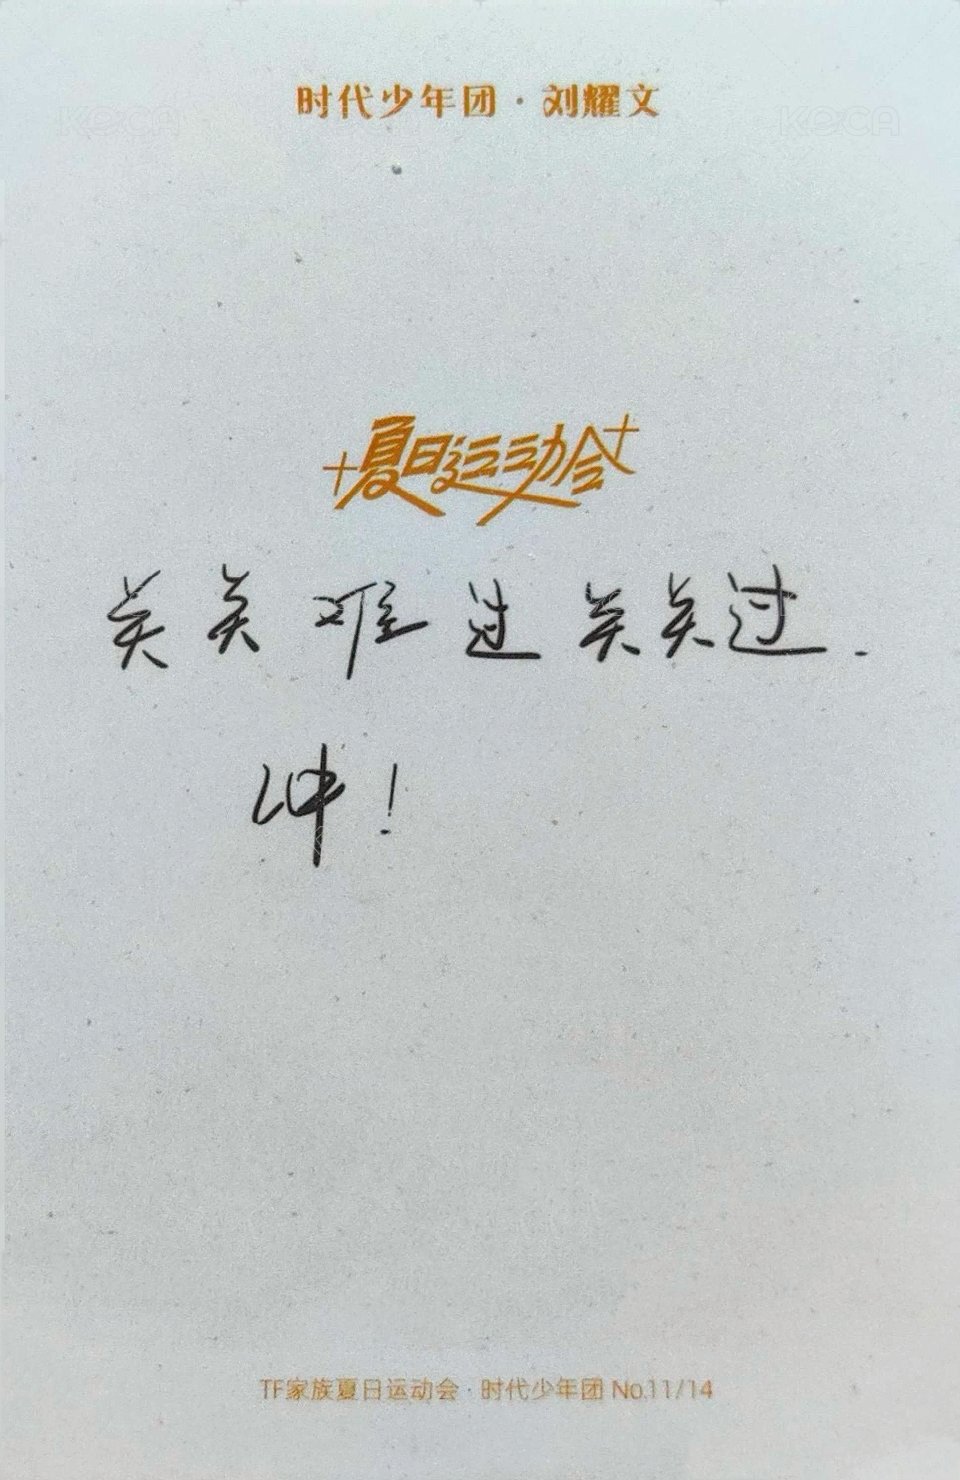 时代少年团·刘耀文
KOCA KOCA
夏日运动会
关关难过关关过.
冲!
TF家族夏日运动会·时代少年团 No.11/14